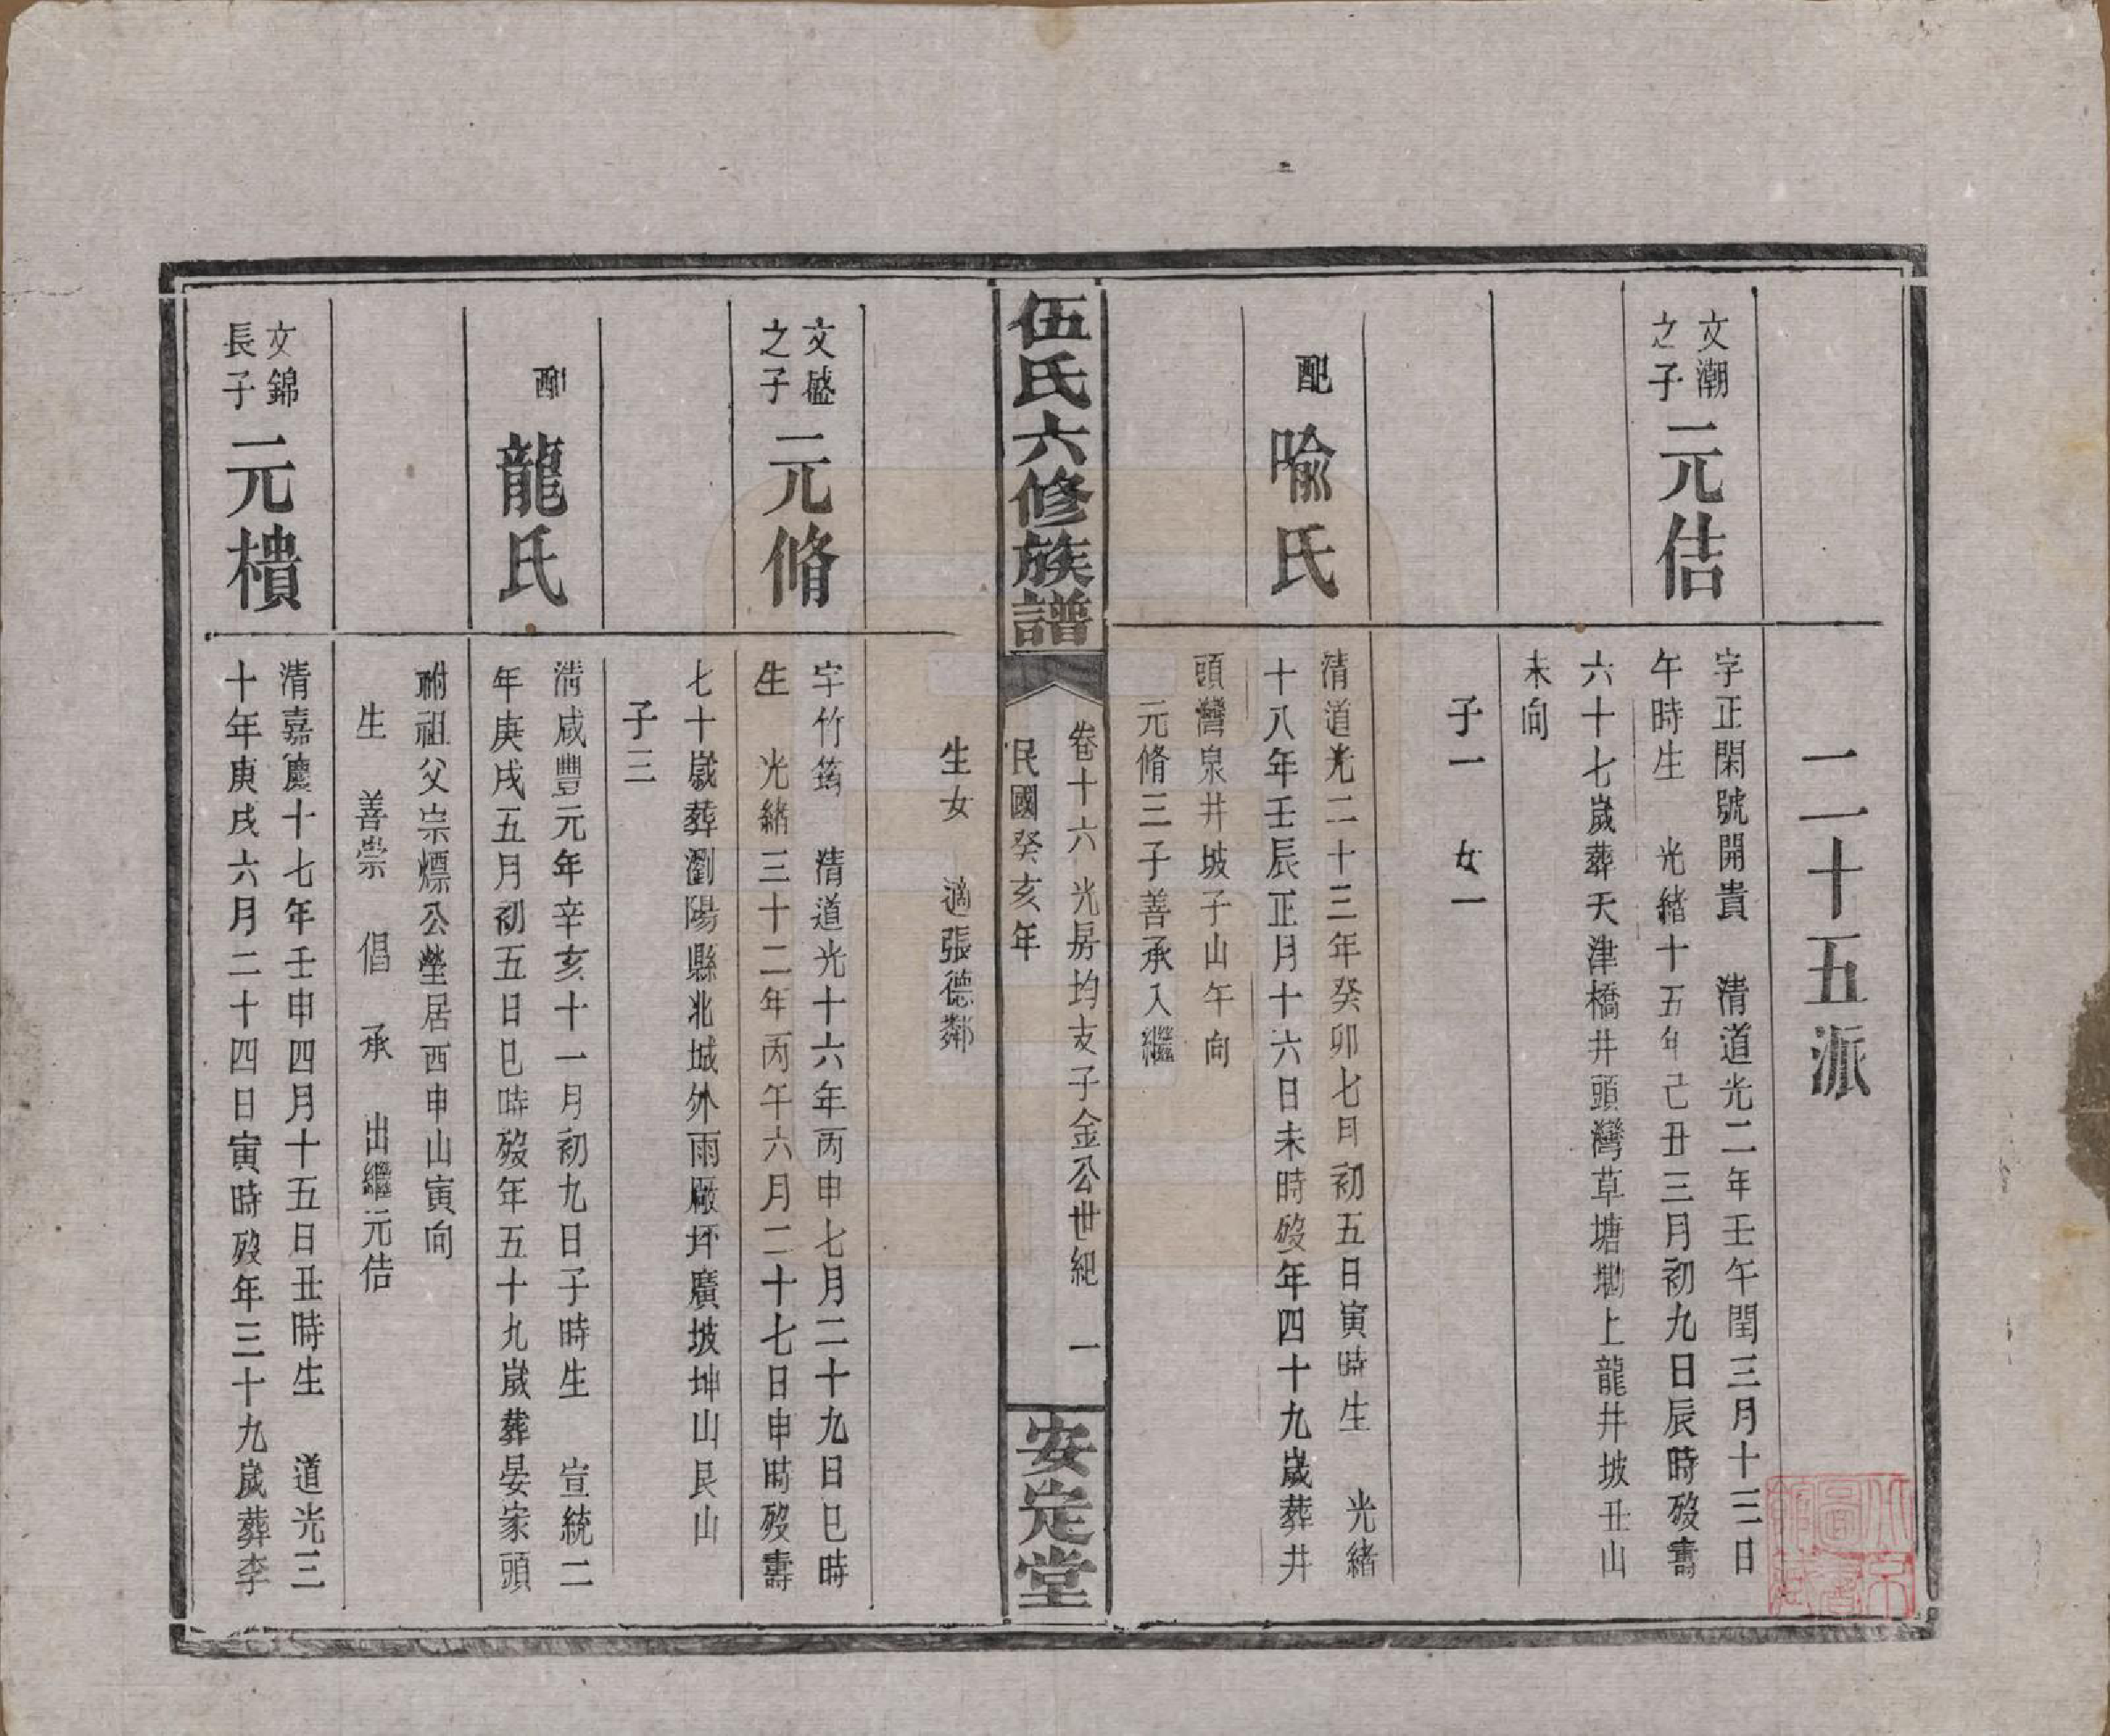 二十五派
文潮之子 元佶
字正閑號開貴 清道光二年壬午閏三月十三日
午時生 光緒十五年己丑三月初九日辰時歿壽
六十七歲葬天津橋井頭灣草塘塅上龍井坡丑山
未向
子一 女一
配 喻氏
清道光二十三年癸卯七月初五日寅時生 光緒
十八年壬辰正月十六日未時歿年四十九歲葬井
頭灣泉井坡子山午向
元脩三子善承入繼
伍氏六修族譜
卷十六 光房均支子金公世紀 一
民國癸亥年
安定堂
生女 適張德鄰
文盛之子 元脩
字竹筠 清道光十六年丙申七月二十九日巳時
生 光緒三十二年丙午六月二十七日申時歿壽
七十歲葬瀏陽縣北城外雨廠坪廣坡坤山艮山
子三
配 龍氏
清咸豐元年辛亥十一月初九日子時生 宣統二
年庚戌五月初五日巳時歿年五十九歲葬晏家頭
祔祖父宗熛公塋居西申山寅向
生 善崇 倡 承 出繼元佶
文錦長子 元樻
清嘉慶十七年壬申四月十五日丑時生 道光三
十年庚戌六月二十四日寅時歿年三十九歲葬李